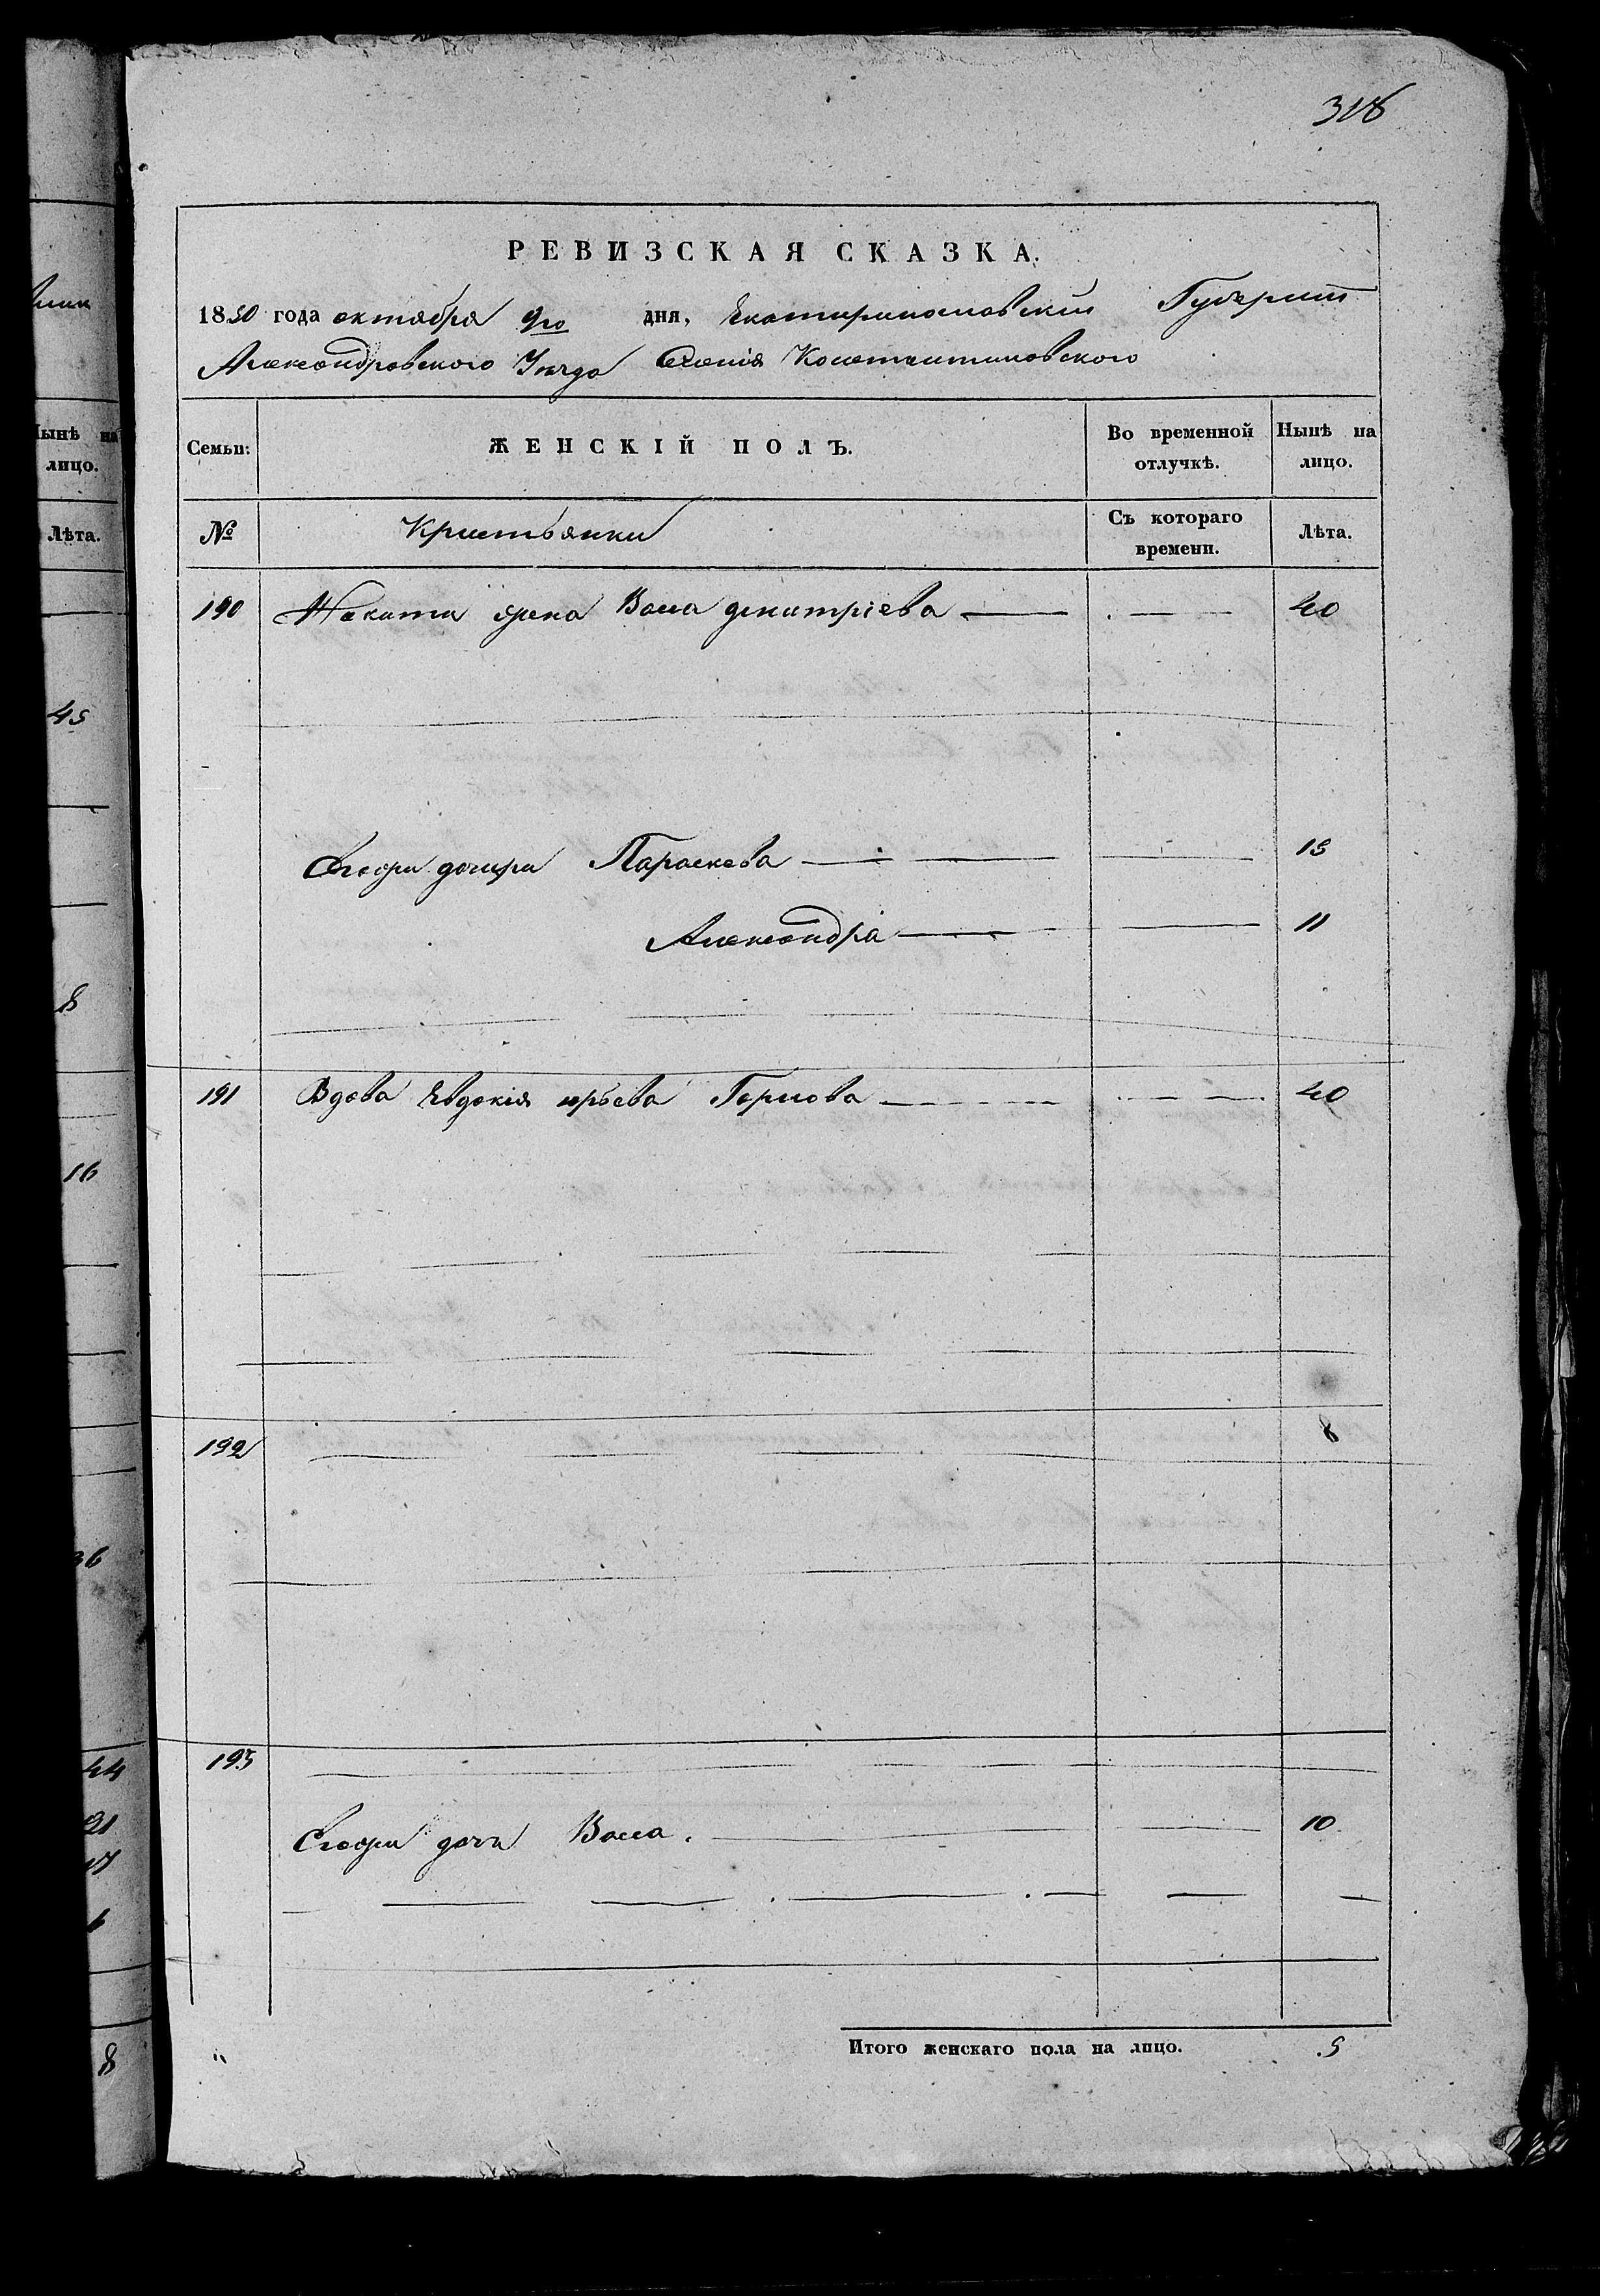 318
РЕВИЗСКАЯ СКАЗКА.
1850 года октября 9го дня, Екатеринославской Губернии
Александровского Уезда Селенія Константиновского
Семьи: ЖЕНСКІЙ ПОЛЪ. Во временной отлучкѣ. Нынѣ на лицо.
№ Кристьянки Съ котораго времени. Лѣта.
190 Никиты жена Васса дмитріева 40
дочери Параскева 15
Александра 11
191 Вдова Евдокія юрьева 40
192
193
дочь Васса. 10
Итого женскаго пола на лицо. 5
Нынѣ на лицо.
Лѣта.
45
8
16
36
44
21
17
8